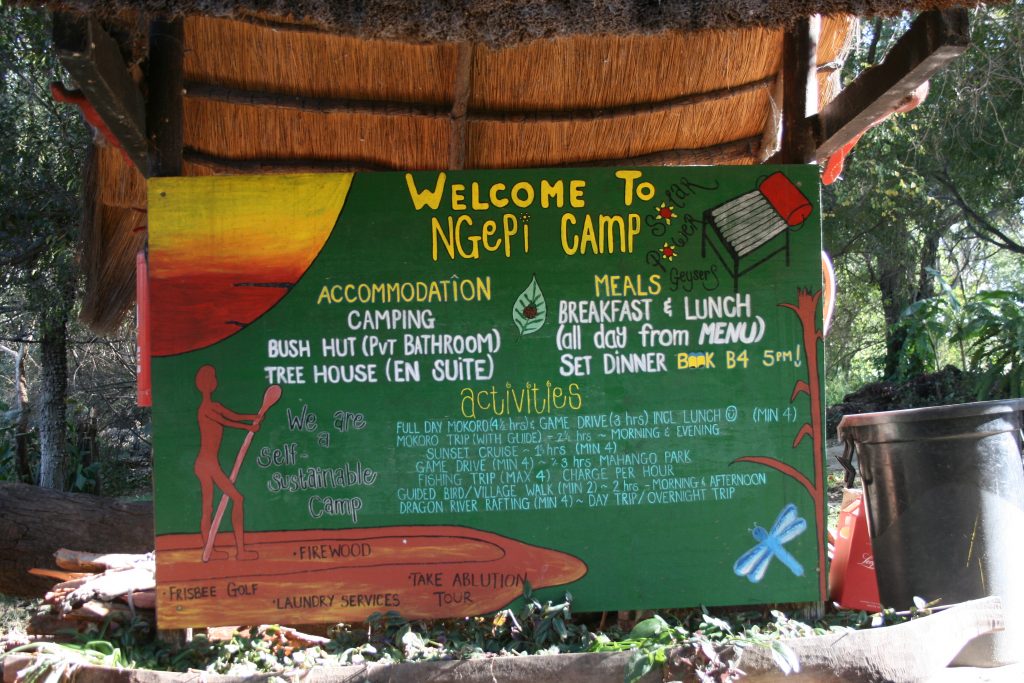 WELCOME TO
NGEPI CAMP
SOLAR
POWER
GEYSERS
ACCOMMODATION
CAMPING
BUSH HUT (PVT BATHROOM)
TREE HOUSE (EN SUITE)
MEALS
BREAKFAST & LUNCH
(all day from MENU)
SET DINNER BOOK B4 5PM!
activities
FULL DAY MOKORO (4½ hrs) & GAME DRIVE (3 hrs) INCL. LUNCH ☺ (MIN 4)
MOKORO TRIP (WITH GUIDE) - 2½ hrs ~ MORNING & EVENING
SUNSET CRUISE ~ 1½ hrs (MIN 4)
GAME DRIVE (MIN 4) ~ 3 hrs MAHANGO PARK
FISHING TRIP (MAX 4) CHARGE PER HOUR
GUIDED BIRD/VILLAGE WALK (MIN 2) - 2 hrs - MORNING & AFTERNOON
DRAGON RIVER RAFTING (MIN 4) ~ DAY TRIP/OVERNIGHT TRIP
We are
a
Self-
sustainable
Camp
• FIREWOOD
• FRISBEE GOLF
• LAUNDRY SERVICES
• TAKE ABLUTION
TOUR